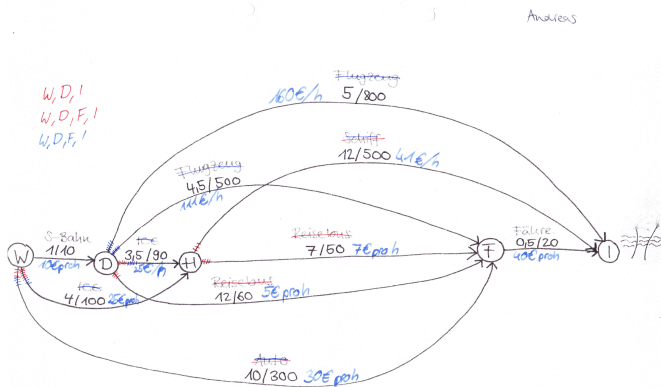 Andreas
W, D, I
W, D, F, I
W, D, F, I
Flugzeug
160€/h 5/800
Schiff
12/500 41€/h
Flugzeug
4,5/500
111€/h
S-Bahn
1/10
10€ proh
ICE
3,5/90
25€/h
Reisebus
7/50 7€ proh
Fähre
0,5/20
40€ proh
W
D
H
F
I
ICE
4/100 25€ proh
Reisebus
12/60 5€ proh
Auto
10/300 30€ proh